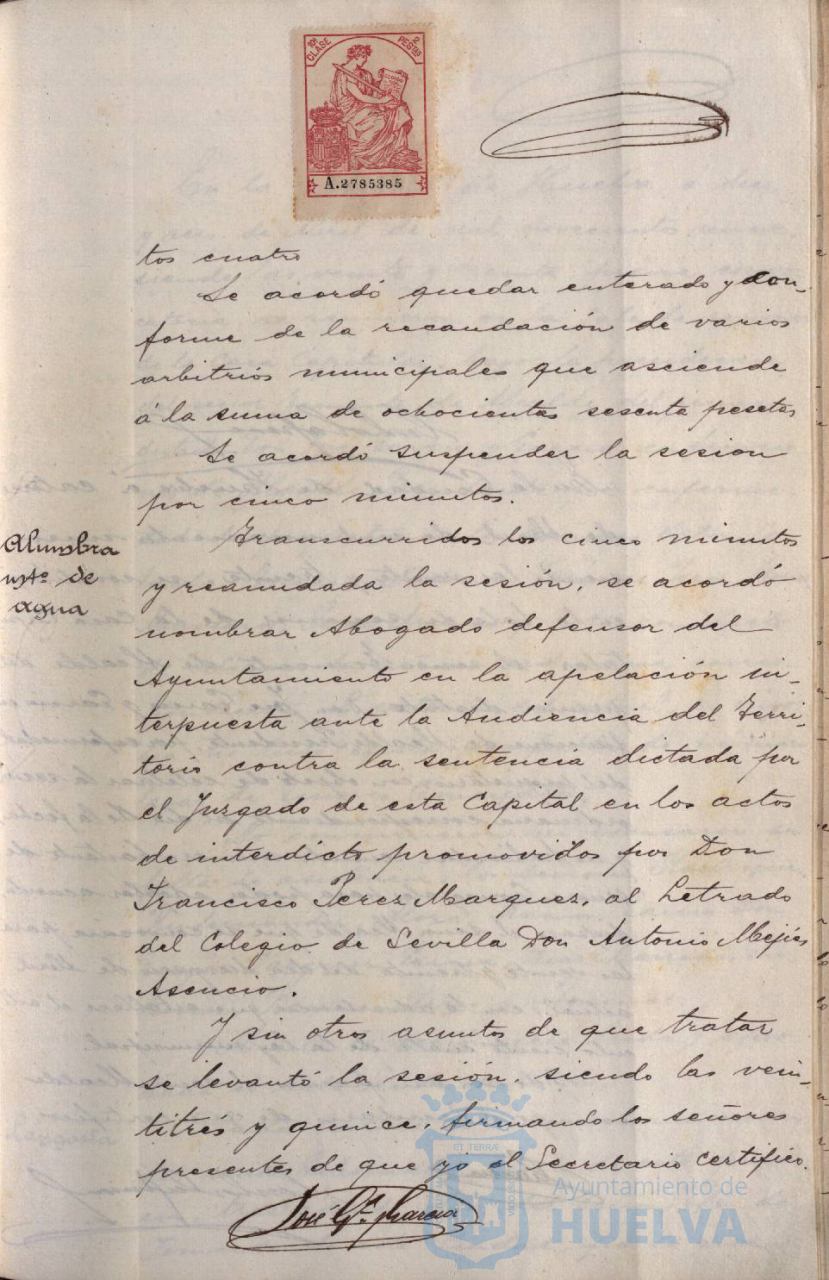 10ª CLASE 2 PESTAS
A.2785385
tos cuatro
Se acordó quedar enterado y con-
forme de la recaudación de varios
arbitrios municipales que asciende
á la suma de ochocientas sesenta pesetas
Se acordó suspender la sesion
por cinco minutos.
Alumbra
mtº de
agua
Transcurridos los cinco minutos
y reanudada la sesión, se acordó
nombrar Abogado defensor del
Ayuntamiento en la apelación in-
terpuesta ante la Audiencia del Terri-
torio contra la sentencia dictada por
el Juzgado de esta Capital en los actos
de interdicto promovidos por Don
Francisco Perez Marquez, al Letrado
del Colegio de Sevilla Don Antonio Mejías
Asencio.
Y sin otros asuntos de que tratar
se levantó la sesión, siendo las vein-
titrés y quince, firmando los señores
presentes de que yo el Secretario certifico.
José Gª García
Ayuntamiento de
HUELVA